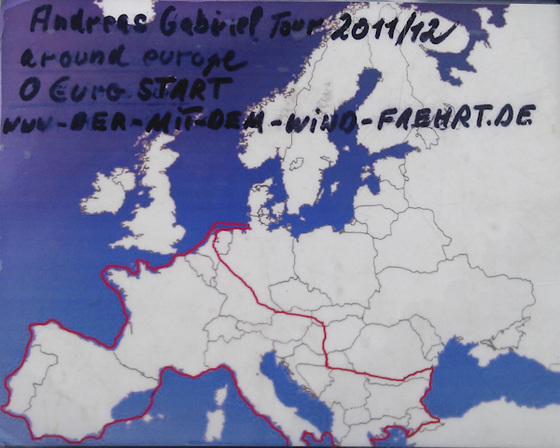 Andreas Gabriel Tour 2011/12
around europe
0 Euro START
WWW-DER-MIT-DEM-WIND-FAEHRT.DE